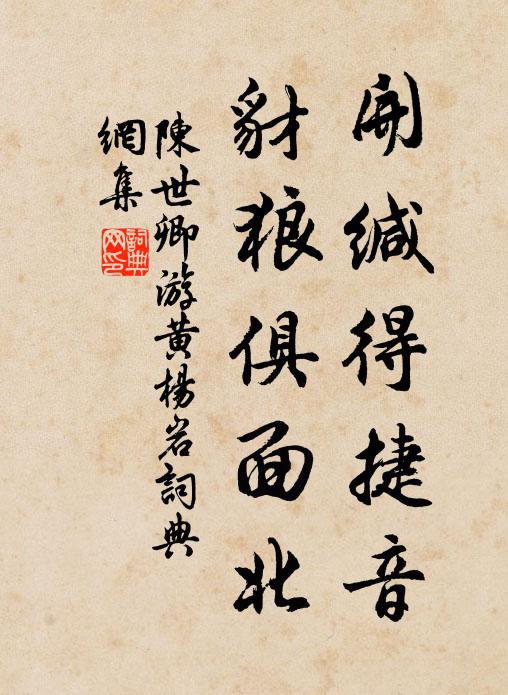 開緘得捷音
豺狼俱面北
陳世卿游黃楊岩詞典
網集
詞典
网印